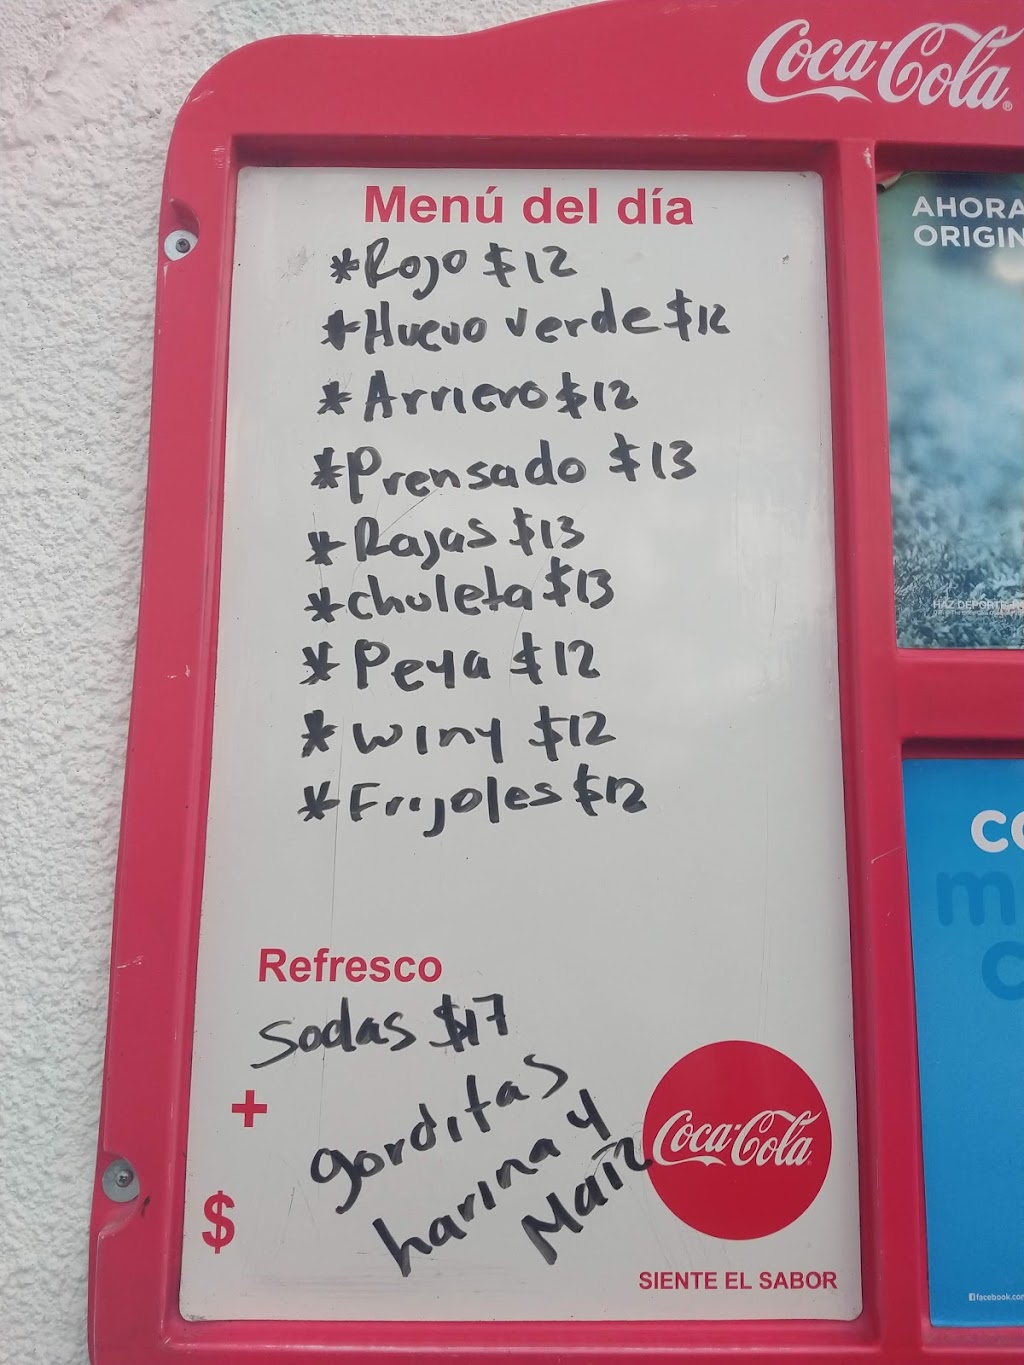 Coca-Cola
Menú del día
*Rojo $12
*Huevo verde $12
*Arriero $12
*Prensado $13
*Rajas $13
*chuleta $13
*Peya $12
*winy $12
*Frijoles $12
Refresco
Sodas $17
+
gorditas
harina y
Maíz
$
Coca-Cola
SIENTE EL SABOR
AHORA
ORIGIN
HAZ DEPORTE
CO
m
C
facebook.com